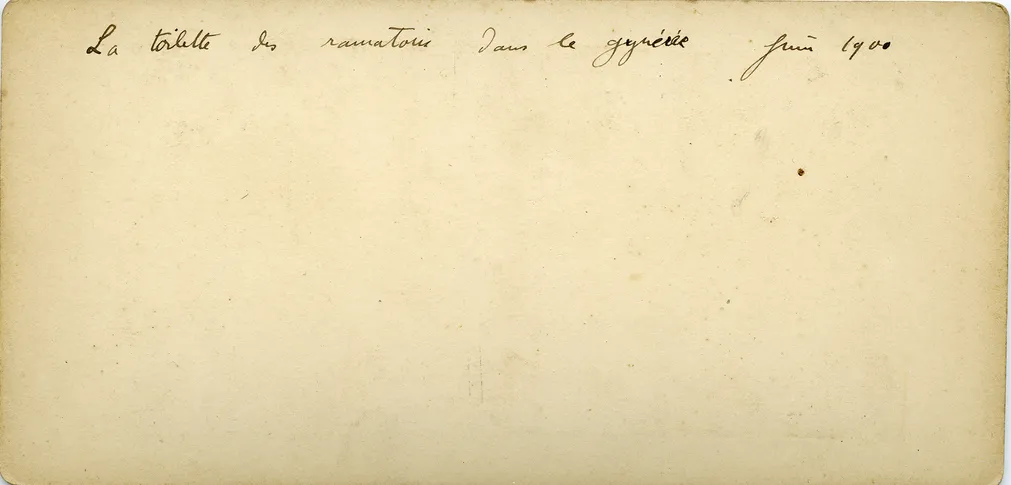 La toilette des ramatous dans le gynécée Juin 1900